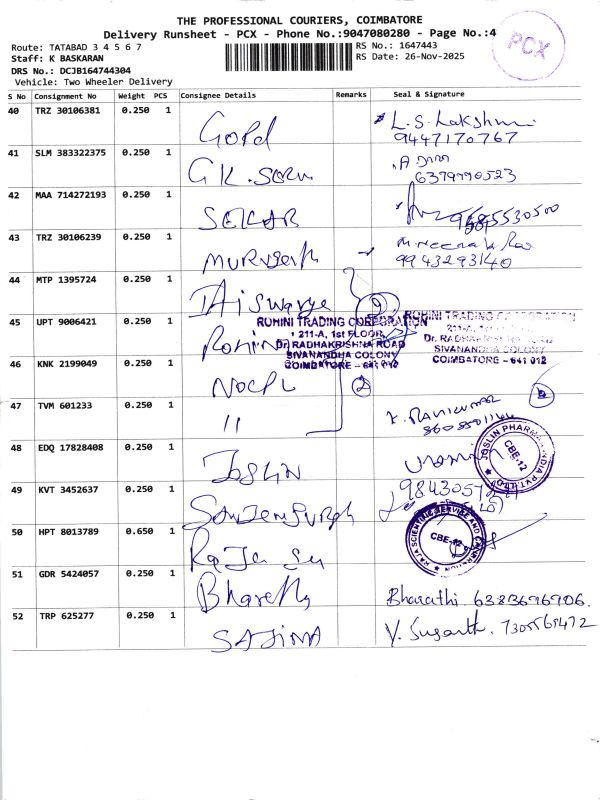 THE PROFESSIONAL COURIERS, COIMBATORE
Delivery Runsheet - PCX - Phone No.:9047080280 - Page No.:4
PCX
Route: TATABAD 3 4 5 6 7
RS No.: 1647443
Staff: K BASKARAN
RS Date: 26-Nov-2025
DRS No.: DCJB164744304
Vehicle: Two Wheeler Delivery
S No Consignment No Weight PCS Consignee Details Remarks Seal & Signature
40 TRZ 30106381 0.250 1 Gold L.S. Lakshmi
9447170767
41 SLM 383322375 0.250 1 GK.
6379990523
42 MAA 714272193 0.250 1 SEKAR
43 TRZ 30106239 0.250 1
9943293140
44 MTP 1395724 0.250 1
45 UPT 9006421 0.250 1 ROHINI
ROHINI TRADING CORPORATION
211-A, 1st FLOOR,
Dr. RADHAKRISHNA ROAD
SIVANANDHA COLONY
COIMBATORE - 641 012
ROHINI TRADING CORPORATION
211-A, 1st FLOOR
Dr. RADHAKRISHNA ROAD
SIVANANDHA COLONY
COIMBATORE - 641 012
46 KNK 2199049 0.250 1
2
47 TVM 601233 0.250 1 "
48 EDQ 17828408 0.250 1 JOSLIN
JOSLIN PHARMA INDIA PVT LTD
CBE-12
49 KVT 3452637 0.250 1
50 HPT 8013789 0.650 1
RAJA SCIENTIFIC SERVICE AND
CBE-12
51 GDR 5424057 0.250 1 Bharathi. 6383696906.
52 TRP 625277 0.250 1 SAJINA V. Susanth. 7305569472